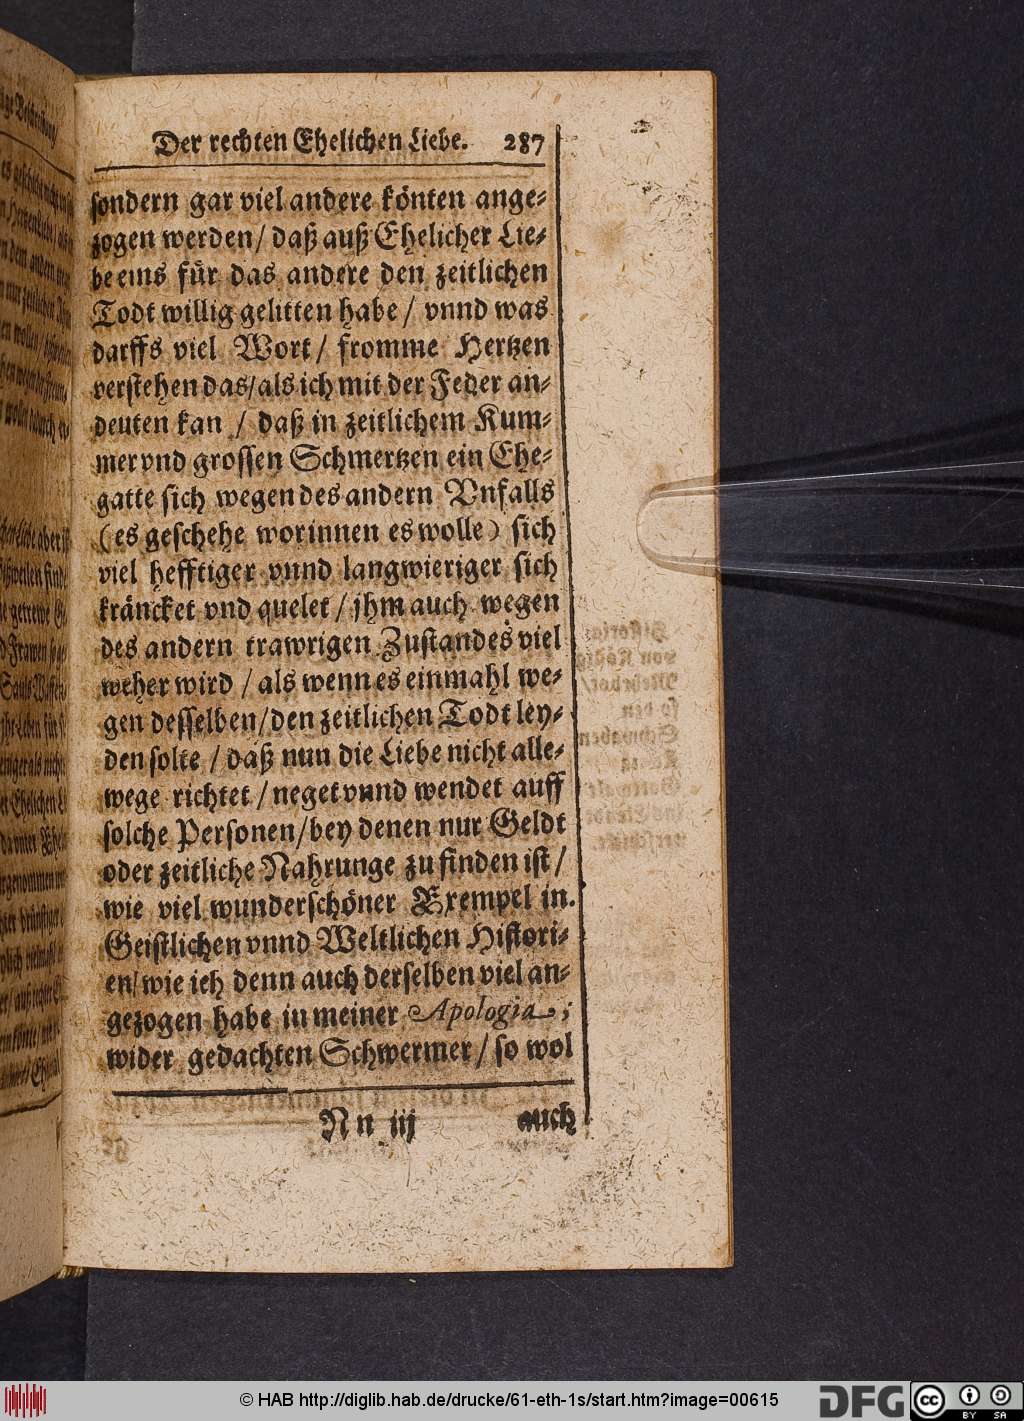 Der rechten Ehelichen Liebe. 287
sondern gar viel andere könten ange-
zogen werden/ daß auß Ehelicher Lie-
be eins für das andere den zeitlichen
Todt willig gelitten habe/ vnnd was
darffs viel Wort/ fromme Hertzen
verstehen das/ als ich mit der Feder an-
deuten kan / daß in zeitlichem Kum-
mer vnd grossen Schmertzen ein Ehe-
gatte sich wegen des andern Vnfalls
(es geschehe worinnen es wolle) sich
viel hefftiger vnnd langwieriger sich
kräncket vnd quelet / jhm auch wegen
des andern trawrigen Zustandes viel
weher wird / als wenn es einmahl we-
gen desselben/ den zeitlichen Todt ley-
den solte / daß nun die Liebe nicht alle-
wege richtet / neget vnnd wendet auff
solche Personen/ bey denen nur Geldt
oder zeitliche Nahrunge zu finden ist/
wie viel wunderschöner Exempel in
Geistlichen vnnd Weltlichen Histori-
en/ wie ich denn auch derselben viel an-
gezogen habe in meiner Apologia,
wider gedachten Schwermer/ so wol
Nn iij auch
© HAB http://diglib.hab.de/drucke/61-eth-1s/start.htm?image=00615
DFG
cc
BY SA